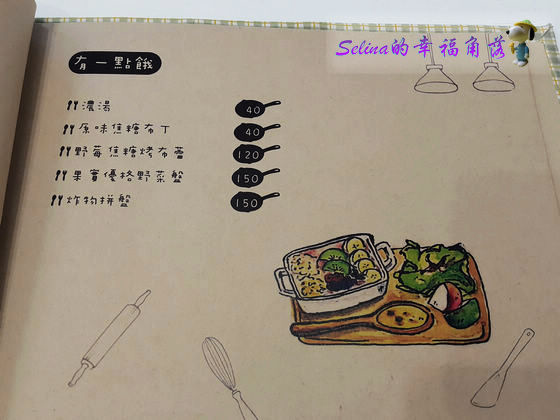 Selina的幸福角落
有一點餓
濃湯 40
原味焦糖布丁 40
野莓焦糖烤布蕾 120
果實優格野菜盤 150
炸物拼盤 150